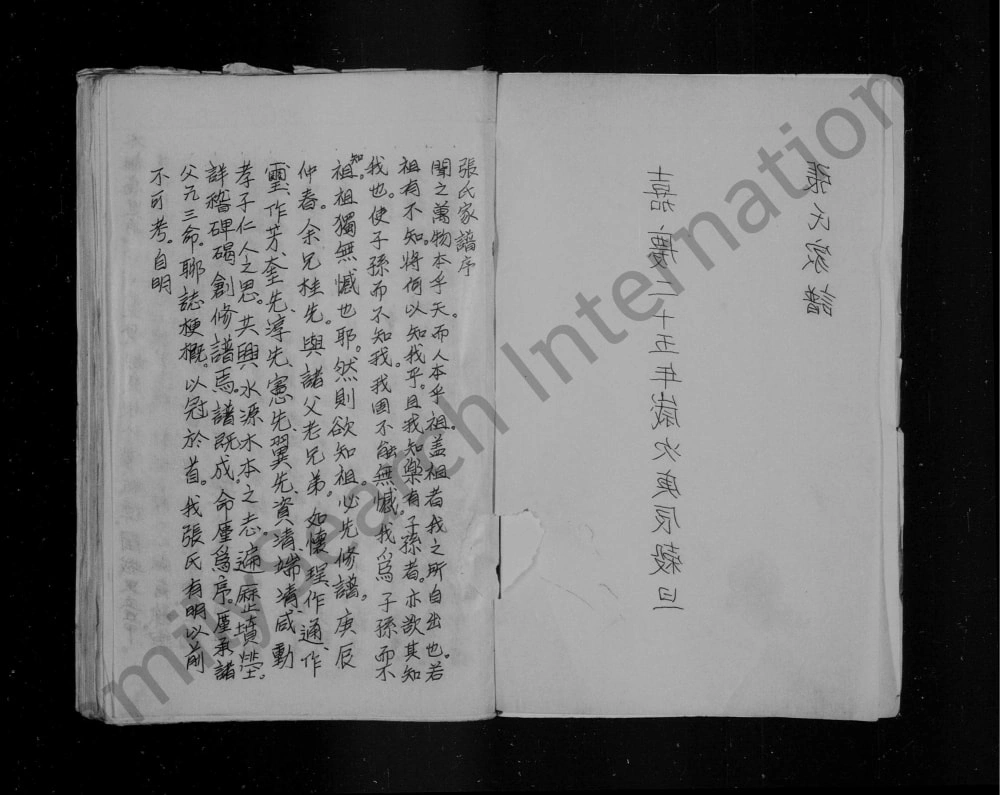 張氏家譜
嘉慶二十五年歲次庚辰穀旦
張氏家譜序
聞之萬物本乎天。而人本乎祖。盖祖者我之所自出也。若
祖有不知將何以知我乎。且我知樂有子孫者。亦欲其知
我也。使子孫而不知我。我固不能無憾。我爲子孫而不
知。祖祖獨無憾也耶。然則欲知祖。必先修譜。庚辰
仲春。余兄桂先。與諸父老兄弟。如懷理、作通、作
璽、作芳、奎先、淳先、憲先、翼先、資清、端清、咸動
孝子仁人之思。共興水源木本之志。遍歷墳塋。
詳稽碑碣。創修譜焉。譜既成。命
爲序。
承諸
父兄三命。聊誌梗概。以冠於首。我張氏有明以前
不可考。自明
milySearch Internation